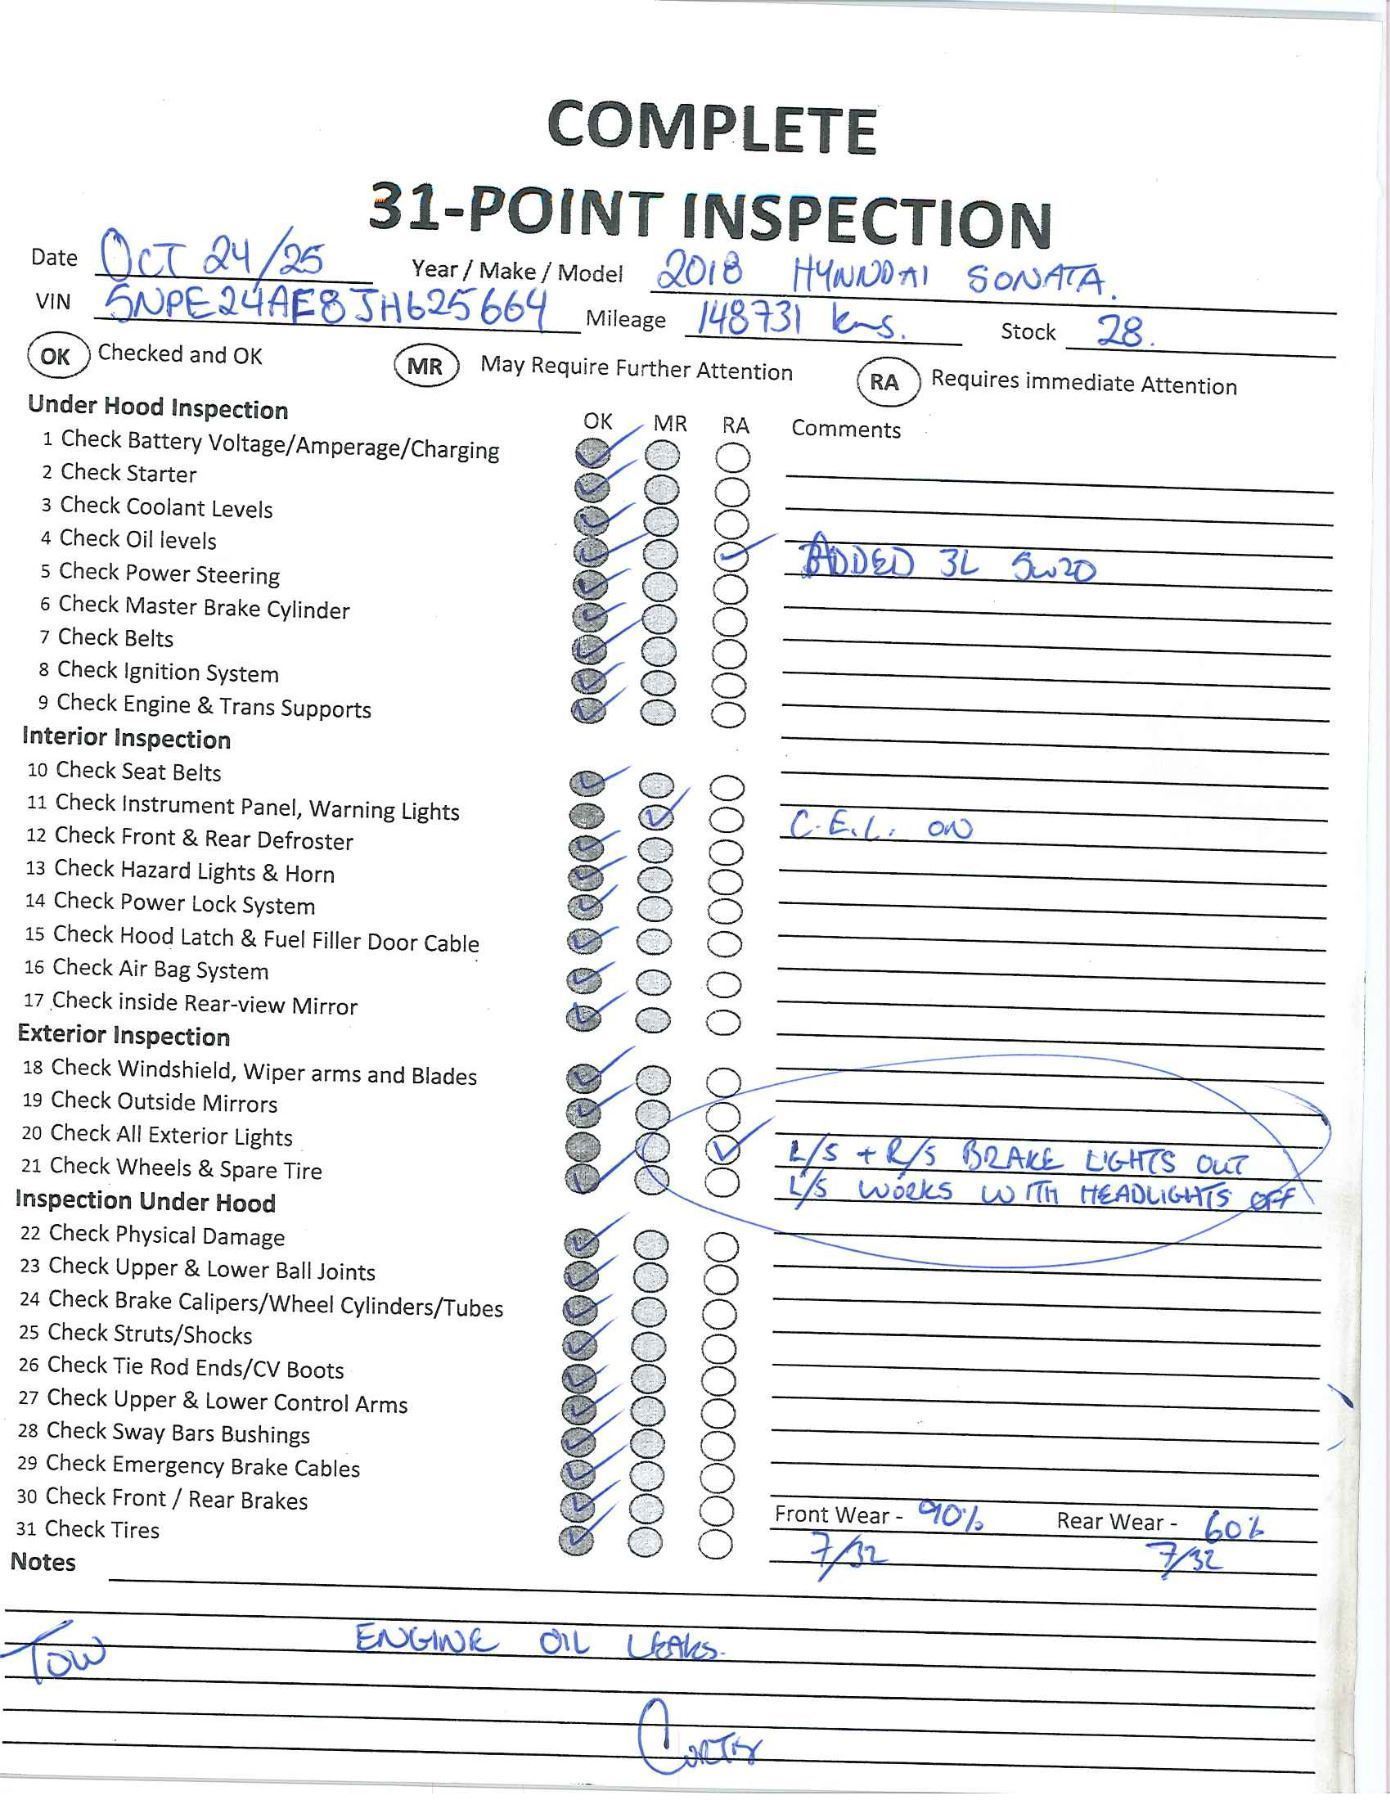 COMPLETE
31-POINT INSPECTION
Date OCT 24/25 Year / Make / Model 2018 HYNNDAI SONATA.
VIN 5NPE24AE8JH625664 Mileage 148731 kms. Stock 28.
OK Checked and OK MR May Require Further Attention RA Requires immediate Attention
Under Hood Inspection OK MR RA Comments
1 Check Battery Voltage/Amperage/Charging
2 Check Starter
3 Check Coolant Levels
4 Check Oil levels ADDED 3L 5W20
5 Check Power Steering
6 Check Master Brake Cylinder
7 Check Belts
8 Check Ignition System
9 Check Engine & Trans Supports
Interior Inspection
10 Check Seat Belts
11 Check Instrument Panel, Warning Lights C.E.L. ON
12 Check Front & Rear Defroster
13 Check Hazard Lights & Horn
14 Check Power Lock System
15 Check Hood Latch & Fuel Filler Door Cable
16 Check Air Bag System
17 Check inside Rear-view Mirror
Exterior Inspection
18 Check Windshield, Wiper arms and Blades
19 Check Outside Mirrors
20 Check All Exterior Lights L/S + R/S BRAKE LIGHTS OUT
21 Check Wheels & Spare Tire L/S WORKS WITH HEADLIGHTS OFF
Inspection Under Hood
22 Check Physical Damage
23 Check Upper & Lower Ball Joints
24 Check Brake Calipers/Wheel Cylinders/Tubes
25 Check Struts/Shocks
26 Check Tie Rod Ends/CV Boots
27 Check Upper & Lower Control Arms
28 Check Sway Bars Bushings
29 Check Emergency Brake Cables
30 Check Front / Rear Brakes Front Wear - 90% Rear Wear - 60%
31 Check Tires 7/32 7/32
Notes
TOW ENGINE OIL LEAKS.